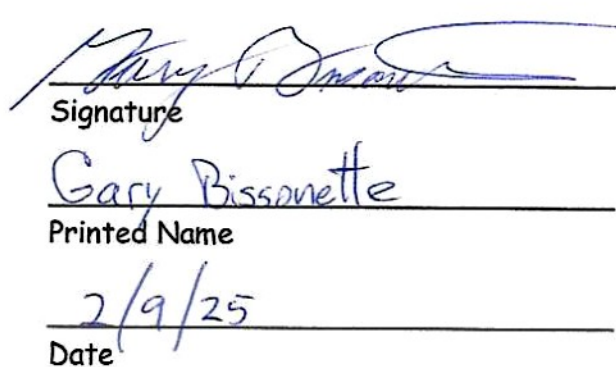 Gary
Signature
Gary Bissonette
Printed Name
2/9/25
Date